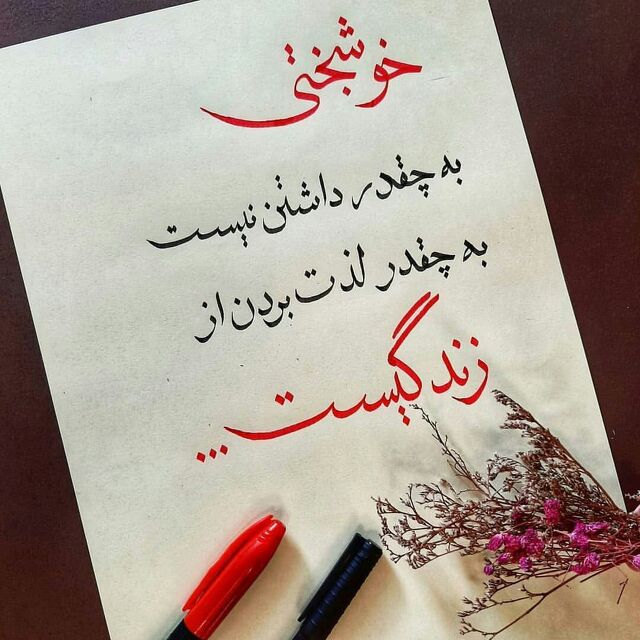 خوشبختی
به چقدر داشتن نیست
به چقدر لذت بردن از
زندگیست...